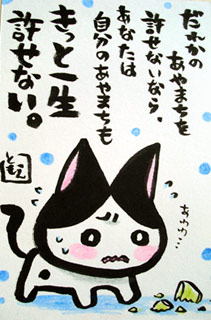 だれかの
あやまちを
許せないなら、
あなたは
自分のあやまちも
きっと一生
許せない。
ともえ
あわわ…